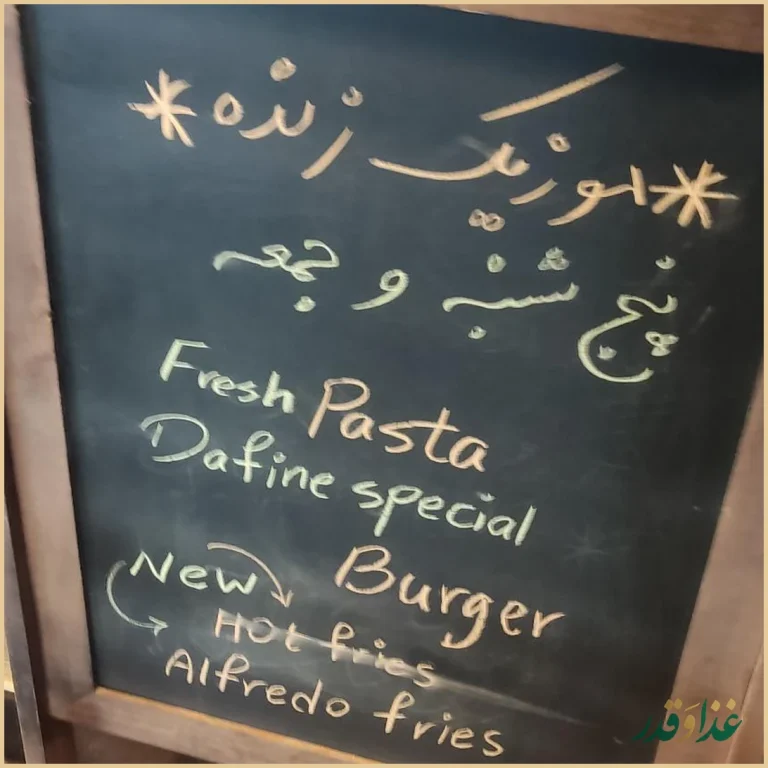 *موزیک زنده*
پنج شنبه و جمعه
Fresh Pasta
Dafine special
New Burger
Hot fries
Alfredo fries
غذا و قدر